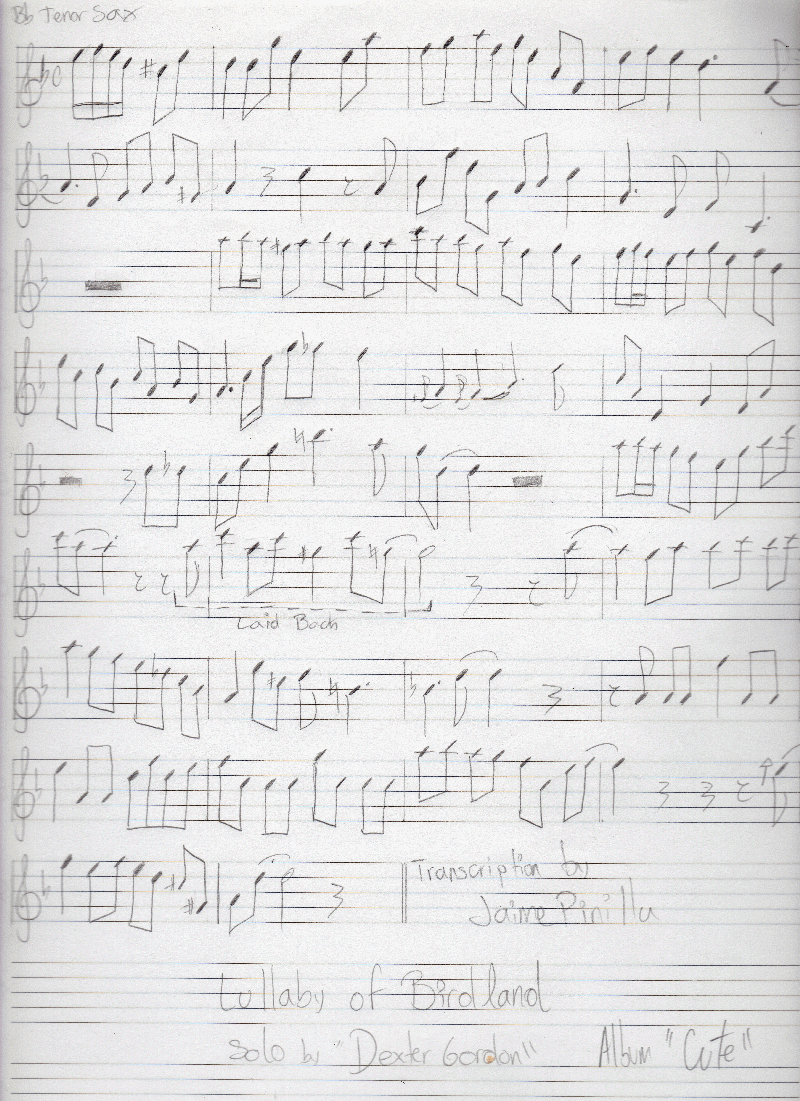 Bb Tenor Sax
Laid Bach
Transcription by
Jaime Pinilla
Lullaby of Birdland
Solo by "Dexter Gordon" Album "Cute"